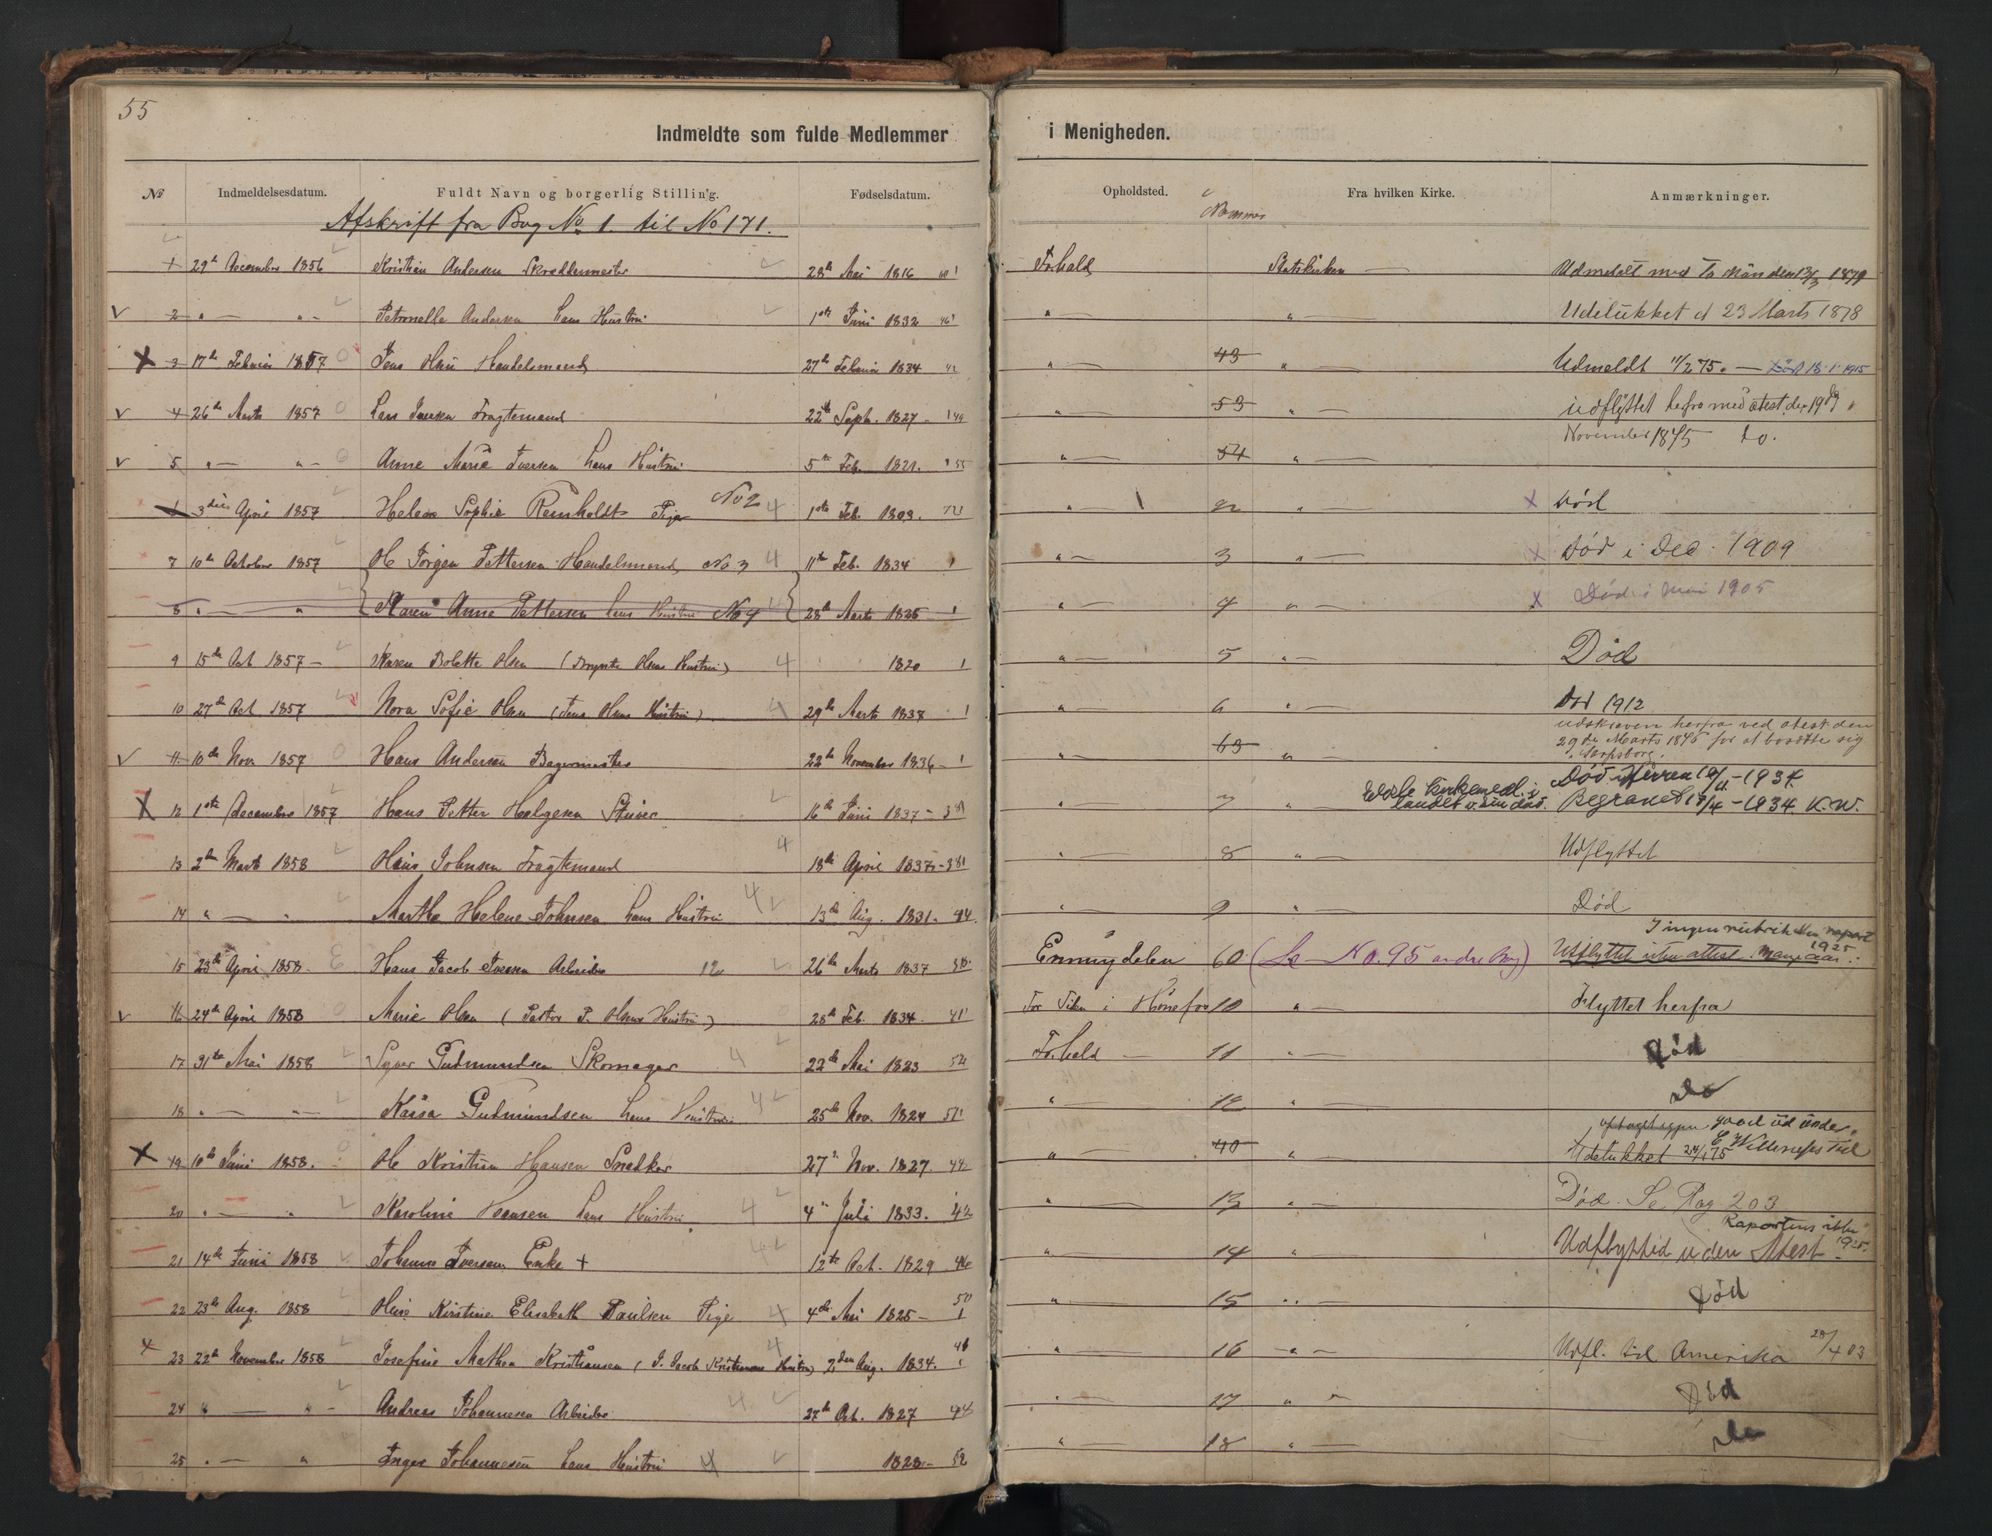 55
Indmeldte som fulde Medlemmer i Menigheden.
No Indmeldelsesdatum. Fuldt Navn og borgerlig Stilling. Fødselsdatum. Opholdsted. Nommer Fra hvilken Kirke. Anmærkninger.
Afskrift fra Bog No. 1. til No 171.
1 29de December 1856 Kristian Andersen Skreddermester 28de Mai 1816 Tohald Statskirken — Udmeldt med den 13/3 1879
2 " — " - Petronelle Andersen hans Hustrui 1ste Juni 1832 46 " — " — Udelukket d 23 Marts 1878
3 17de Februar 1857 0 Jens Olsen Handelsmand 27de Februar 1834 42 " — 43 " — Udmeldt 11/2 75. — Død 18.1.1915
4 26de Marts 1857 0 Lars Iversen Fragtemand 22de Septb. 1827 - 49 " — 53 " — udflyttet herfra med atest den 19
November 1875 do.
5 " — " - 0 Anne Marie Iversen hans Hustrui 5te Feb. 1821. 55 " — 54 " —
3die April 1857 Helene Sophie Reinholdt Pige No 2 4 1ste Feb. 1803. 72 " — 2 " — X Død
7 10de October 1857 O Jørgen Pettersen Handelsmand No 3 4 11te Feb. 1834 " — 3 " — X Død i Dec. 1909
8 " — " Karen Anne Pettersen hans Hustrui No 4 28de Marts 1835 " — 4 " — X Død i Mai 1905
9 15de Oct 1857 - Karen Bolette Olsen ( Olsens Hustrui) 4 1820 " — 5 " — Død
10 27de Oct. 1857 Nora Sofie Olsen (Jens Olsens Hustrui) 4 29de Marts 1838 " — 6 " — Død 1912
udskreven herfra ved atest den
29de Marts 1876 for at bosætte sig
i Sarpsborg.
11 10de Nov. 1857 0 Hans Andersen Bagermester 22de November 1836 - " — 63 " —
X 12 1ste December 1857 Hans Petter Helgesen Stuer 16de Juni 1837 - 38 " — 7 " Eldste kirkemedl. i landet v. sin død. Død i Herren 10/4-1934. Begravet 17/4-1934. K.W.
13 2de Marts 1858 Hans Johnsen Fragtemand 4 18de April 1837 - 38 " — 8 " — Udflyttet
14 " — " Marthe Helene Johnsen hans Hustrui 4 13de Aug. 1831. 44 " — 9 " — Død
I ingen rubrik den raport 1925
15 23de April 1858. Hans Jacob Iversen Arbeider 12 26de Marts 1837 38 Enningdalen 60 (Se No. 95 andre Bog) Udflyttet uten attest. Mange aar.
16 24de April 1858 0 Marie Olsen (Pastor P. Olsens Hustrui) 28de Feb. 1834. 41 For Tiden i Hønefos 10 " — Flyttet herfra
17 31te Mai 1858 Syver Gudmundsen Skomager 4 22de Mai 1823 52 Tohald — 11 " — Død
18 " — " - Kaisa Gudmundsen hans Hustrui 4 25de Nov. 1824 51 " — 12 " — Do
X 19 10de Juni 1858. 0 O Kristian Hansen Snedker 27de Nov. 1827. 44 " — 40 " — optaget igjen gaaet ud under E. Willerups Tid
Udelukket 24/1 75
20 " — " Karoline Hansen hans Hustrui 4 4de Juli 1833. 42 " — 13 " — Død. Se Pag 203
21 14de Juni 1858 Johannes Iversen Enke + 4 12te Oct. 1829 46 " — 14 " — Udflyttid uden Atest - Raporteres ikke 1925.
22 23de Aug. 1858 Oline Kirstine Elisabeth Paulsen Pige 4 4de Mai 1825 - 50 " — 15 " — Død
23 22de November 1858 Josefine Mathea Kristiansen (J. Jacob Kristiansens Hustrui) 4 2den Aug. 1834. 41 " — 16 " — Udfl. til Amerika 28/4 03
24 " — " - Andreas Johannesen Arbeider 4 27de Oct. 1827 44 " — 17 " — Død
25 " — " Inger Johannesen hans Hustrui 4 1823 - 52 " — 18 " — Do